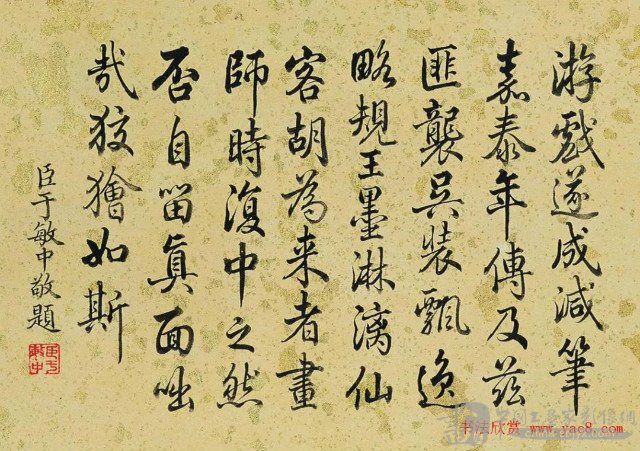 游戲遂成減筆
嘉泰年傳及茲
匪襲吳裝飄逸
略規王墨淋漓仙
客胡為来者畫
師時復中之然
否自留真面咄
哉狡獪如斯
臣于敏中敬題
书法欣赏 www.yac8.com